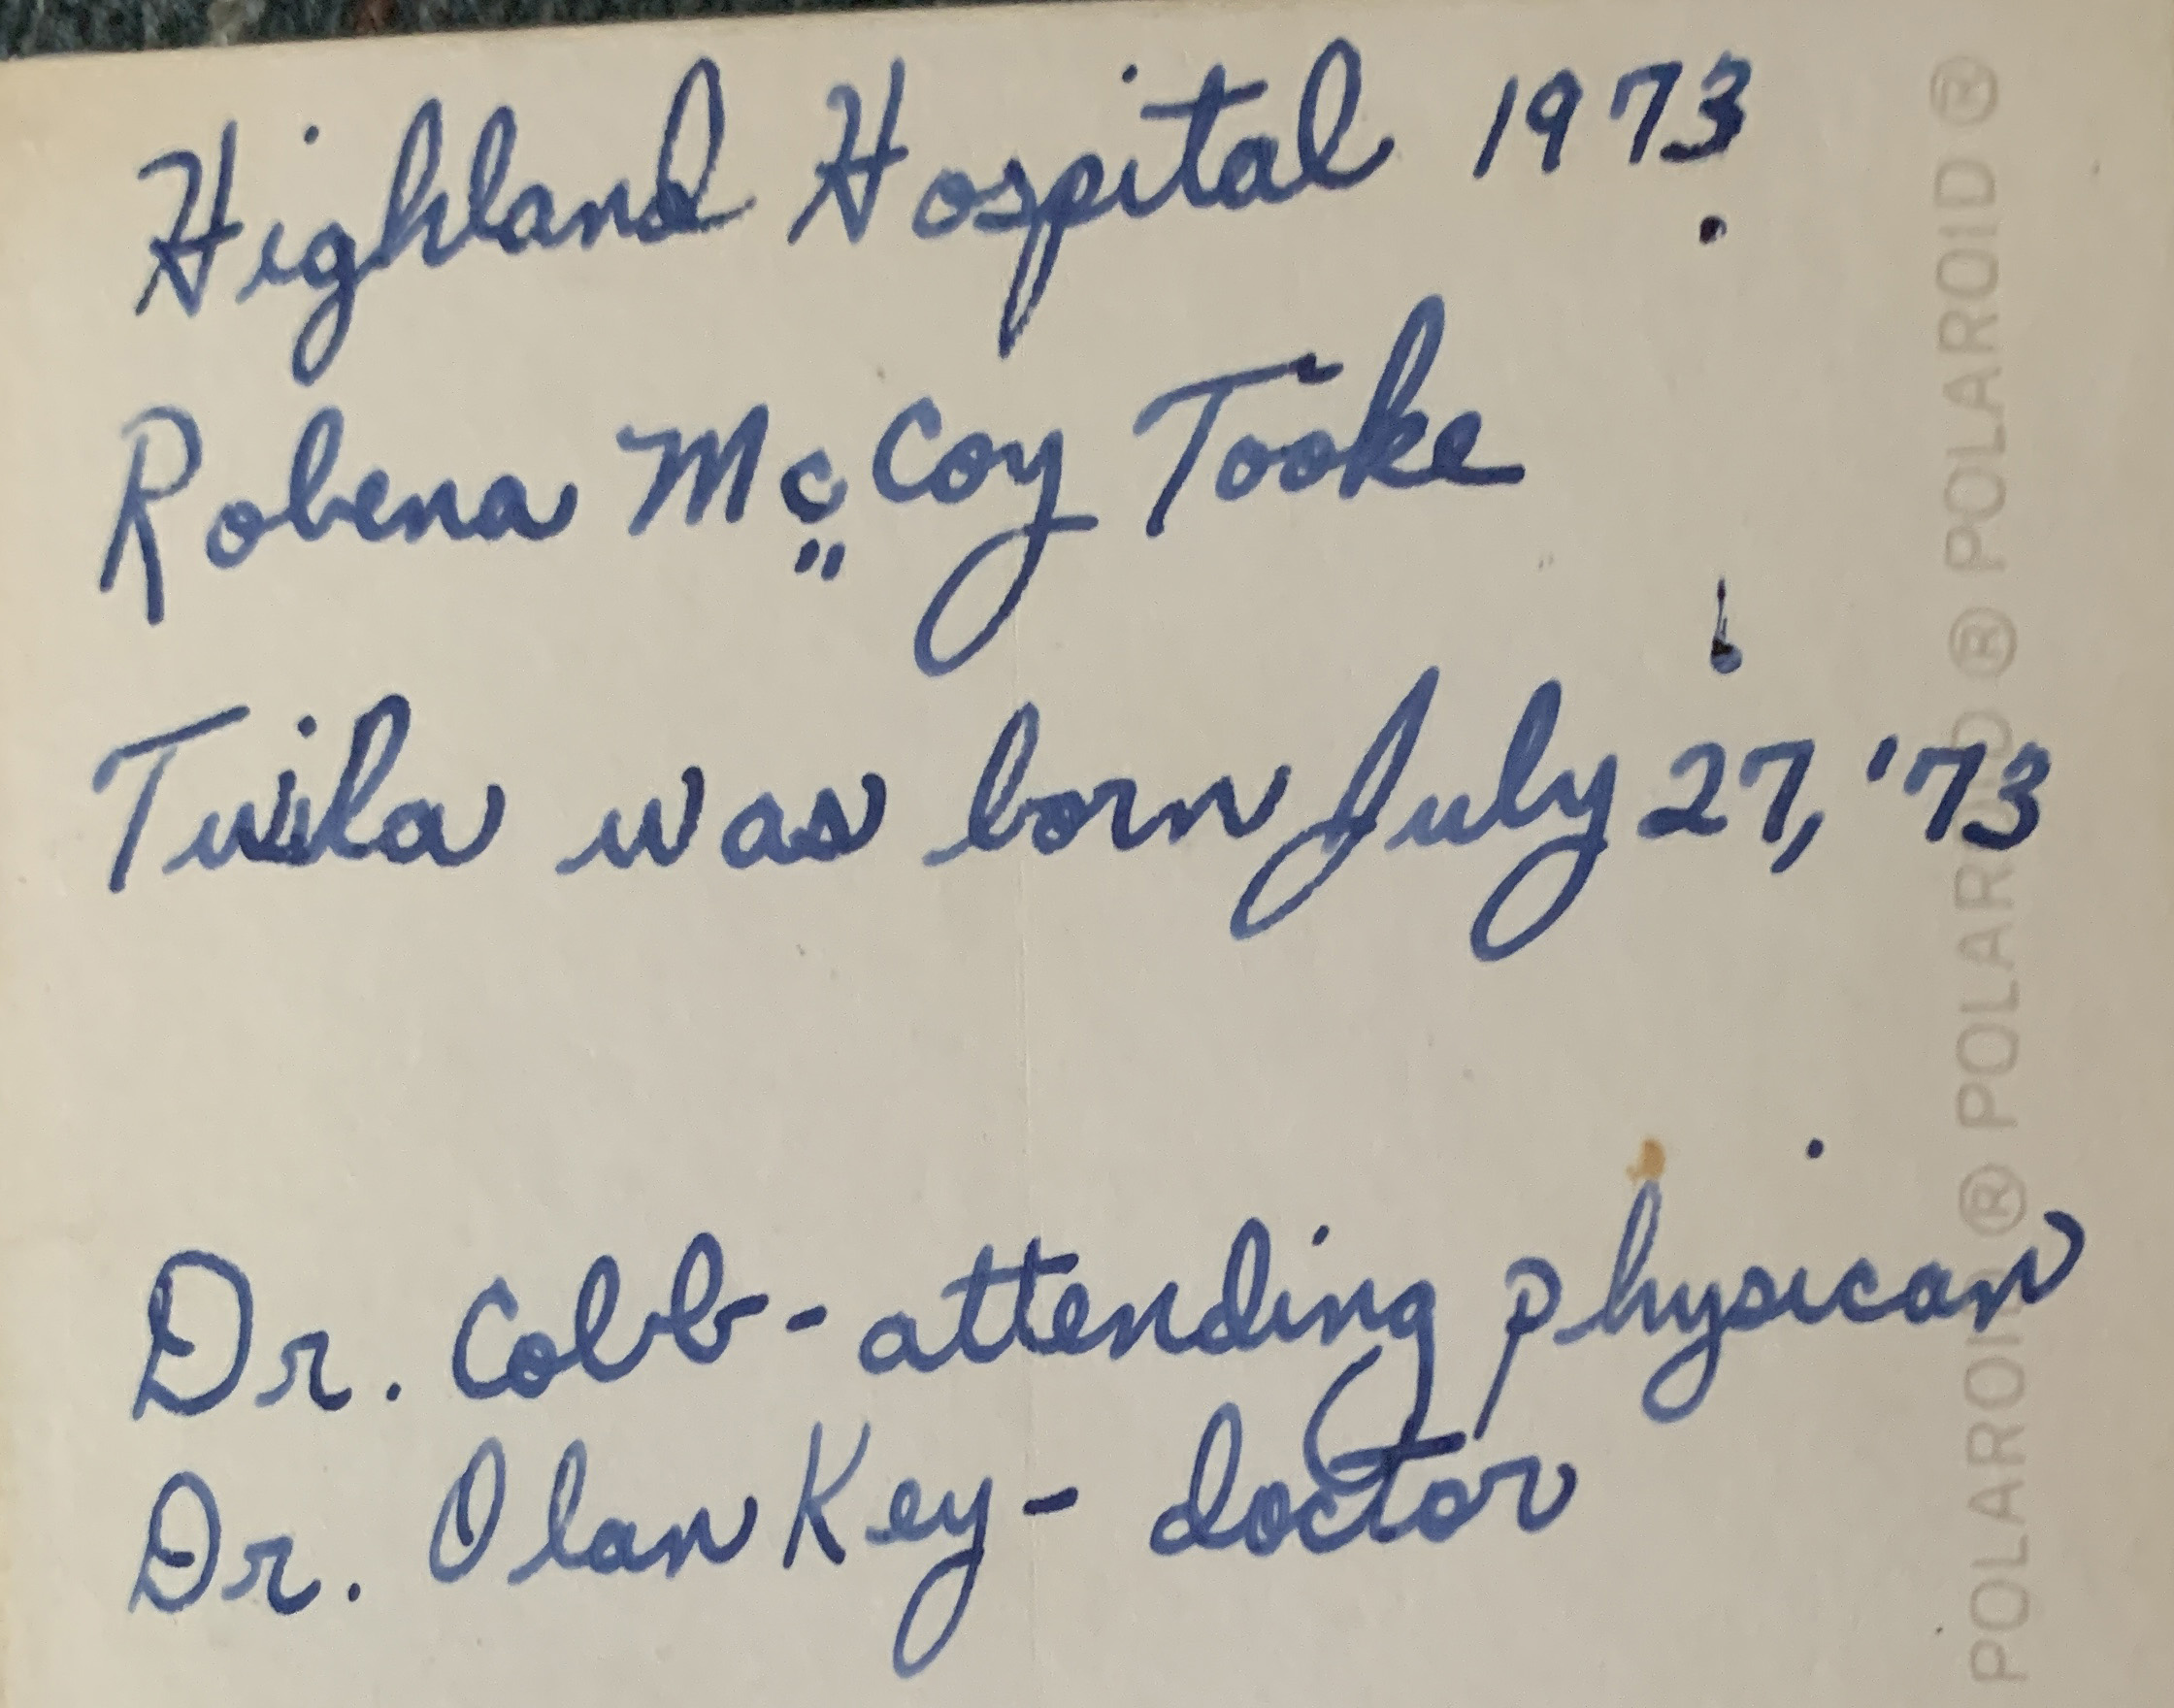 Highland Hospital 1973
Robena McCoy Tooke
Twila was born July 27, '73
Dr. Cobb - attending physican
Dr. Olan Key - doctor
POLAROID ® POLAROID ® POLAROID ® POLAROID ®